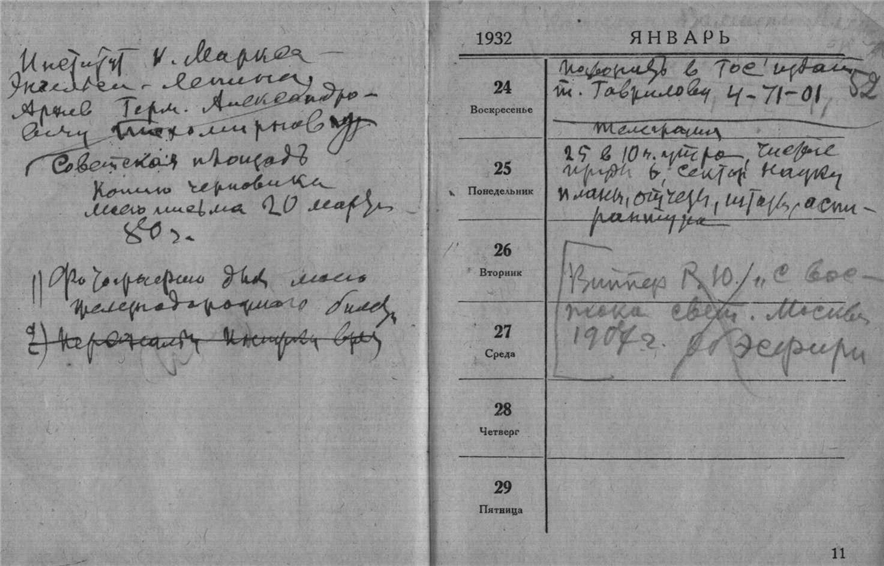 Институт К. Маркса –
Энгельса – Ленина,
Архив Герм. Александро-
вичу Тихомирнову
Советская площадь
Копию черновика
моего письма 20 марта
80 г.
1) Фотографию для моего
железнодорожного билета
2)
1932 ЯНВАРЬ
24
Воскресенье
в Гос. издат
т. Гаврилову, 4-71-01, 52
телеграмма
25
Понедельник
25 в 10 ч. утра,
в сектор науки
планы, отчеты, штаты, аспи-
рантура
26
Вторник
Виппер Р. Ю. „С Вос-
тока свет. Москва
27
Среда
1907 г. Об Эсфири
28
Четверг
29
Пятница
11